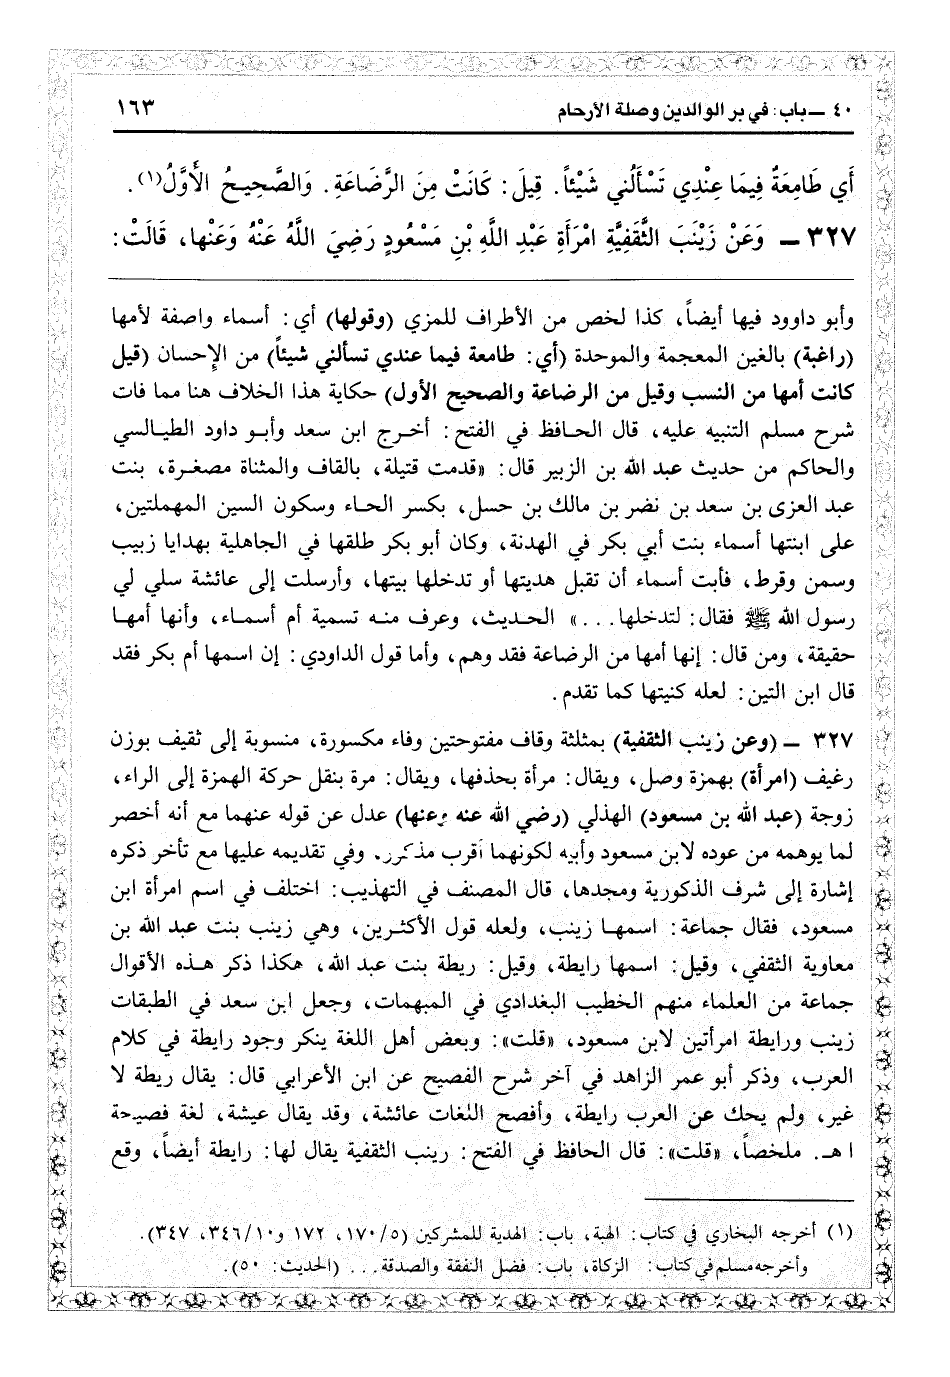 ٤٠ ــ باب: في بر الوالدين وصلة الأرحام
١٦٣
أَي طَامِعَةٌ فِيمَا عِنْدِي تَسْأَلُني شَيْئاً. قِيلَ: كَانَتْ مِنَ الرَّضَاعَةِ. وَالصَّحِيحُ الأَوَّلُ(١).
٣٢٧ ــ وَعَنْ زَيْنَبَ الثَّقَفِيَّةِ امْرَأَةِ عَبْدِ اللَّهِ بْنِ مَسْعُودٍ رَضِيَ اللَّهُ عَنْهُ وَعَنْها، قَالَتْ:
وأبو داوود فيها أيضاً، كذا لخص من الأطراف للمزي (وقولها) أي: أسماء واصفة لأمها
(راغبة) بالغين المعجمة والموحدة (أي: طامعة فيما عندي تسألني شيئاً) من الإحسان (قيل
كانت أمها من النسب وقيل من الرضاعة والصحيح الأول) حكاية هذا الخلاف هنا مما فات
شرح مسلم التنبيه عليه، قال الحافظ في الفتح: أخرج ابن سعد وأبو داود الطيالسي
والحاكم من حديث عبد الله بن الزبير قال: «قدمت قتيلة، بالقاف والمثناة مصغرة، بنت
عبد العزى بن سعد بن نضر بن مالك بن حسل، بكسر الحاء وسكون السين المهملتين،
على ابنتها أسماء بنت أبي بكر في الهدنة، وكان أبو بكر طلقها في الجاهلية بهدايا زبيب
وسمن وقرط، فأبت أسماء أن تقبل هديتها أو تدخلها بيتها، وأرسلت إلى عائشة سلي لي
رسول الله ﷺ فقال: لتدخلها...» الحديث، وعرف منه تسمية أم أسماء، وأنها أمها
حقيقة، ومن قال: إنها أمها من الرضاعة فقد وهم، وأما قول الداودي: إن اسمها أم بكر فقد
قال ابن التين: لعله كنيتها كما تقدم.
٣٢٧ ــ (وعن زينب الثقفية) بمثلثة وقاف مفتوحتين وفاء مكسورة، منسوبة إلى ثقيف بوزن
رغيف (امرأة) بهمزة وصل، ويقال: مرأة بحذفها، ويقال: مرة بنقل حركة الهمزة إلى الراء،
زوجة (عبد الله بن مسعود) الهذلي (رضي الله عنه وعنها) عدل عن قوله عنهما مع أنه أخصر
لما يوهمه من عوده لابن مسعود وأبيه لكونهما أقرب مذكور. وفي تقديمه عليها مع تأخر ذكره
إشارة إلى شرف الذكورية ومجدها، قال المصنف في التهذيب: اختلف في اسم امرأة ابن
مسعود، فقال جماعة: اسمها زينب، ولعله قول الأكثرين، وهي زينب بنت عبد الله بن
معاوية الثقفي، وقيل: اسمها رايطة، وقيل: ريطة بنت عبد الله، هكذا ذكر هذه الأقوال
جماعة من العلماء منهم الخطيب البغدادي في المبهمات، وجعل ابن سعد في الطبقات
زينب ورايطة امرأتين لابن مسعود، «قلت»: وبعض أهل اللغة ينكر وجود رايطة في كلام
العرب، وذكر أبو عمر الزاهد في آخر شرح الفصيح عن ابن الأعرابي قال: يقال ريطة لا
غير، ولم يحك عن العرب رايطة، وأفصح اللغات عائشة، وقد يقال عيشة، لغة فصيحة
ا هـ. ملخصاً، «قلت»: قال الحافظ في الفتح: زينب الثقفية يقال لها: رايطة أيضاً، وقع
(١) أخرجه البخاري في كتاب: الهبة، باب: الهدية للمشركين (١٧٠/٥، ١٧٢ و٣٤٦/١٠، ٣٤٧).
وأخرجه مسلم في كتاب: الزكاة، باب: فضل النفقة والصدقة... (الحديث: ٥٠).